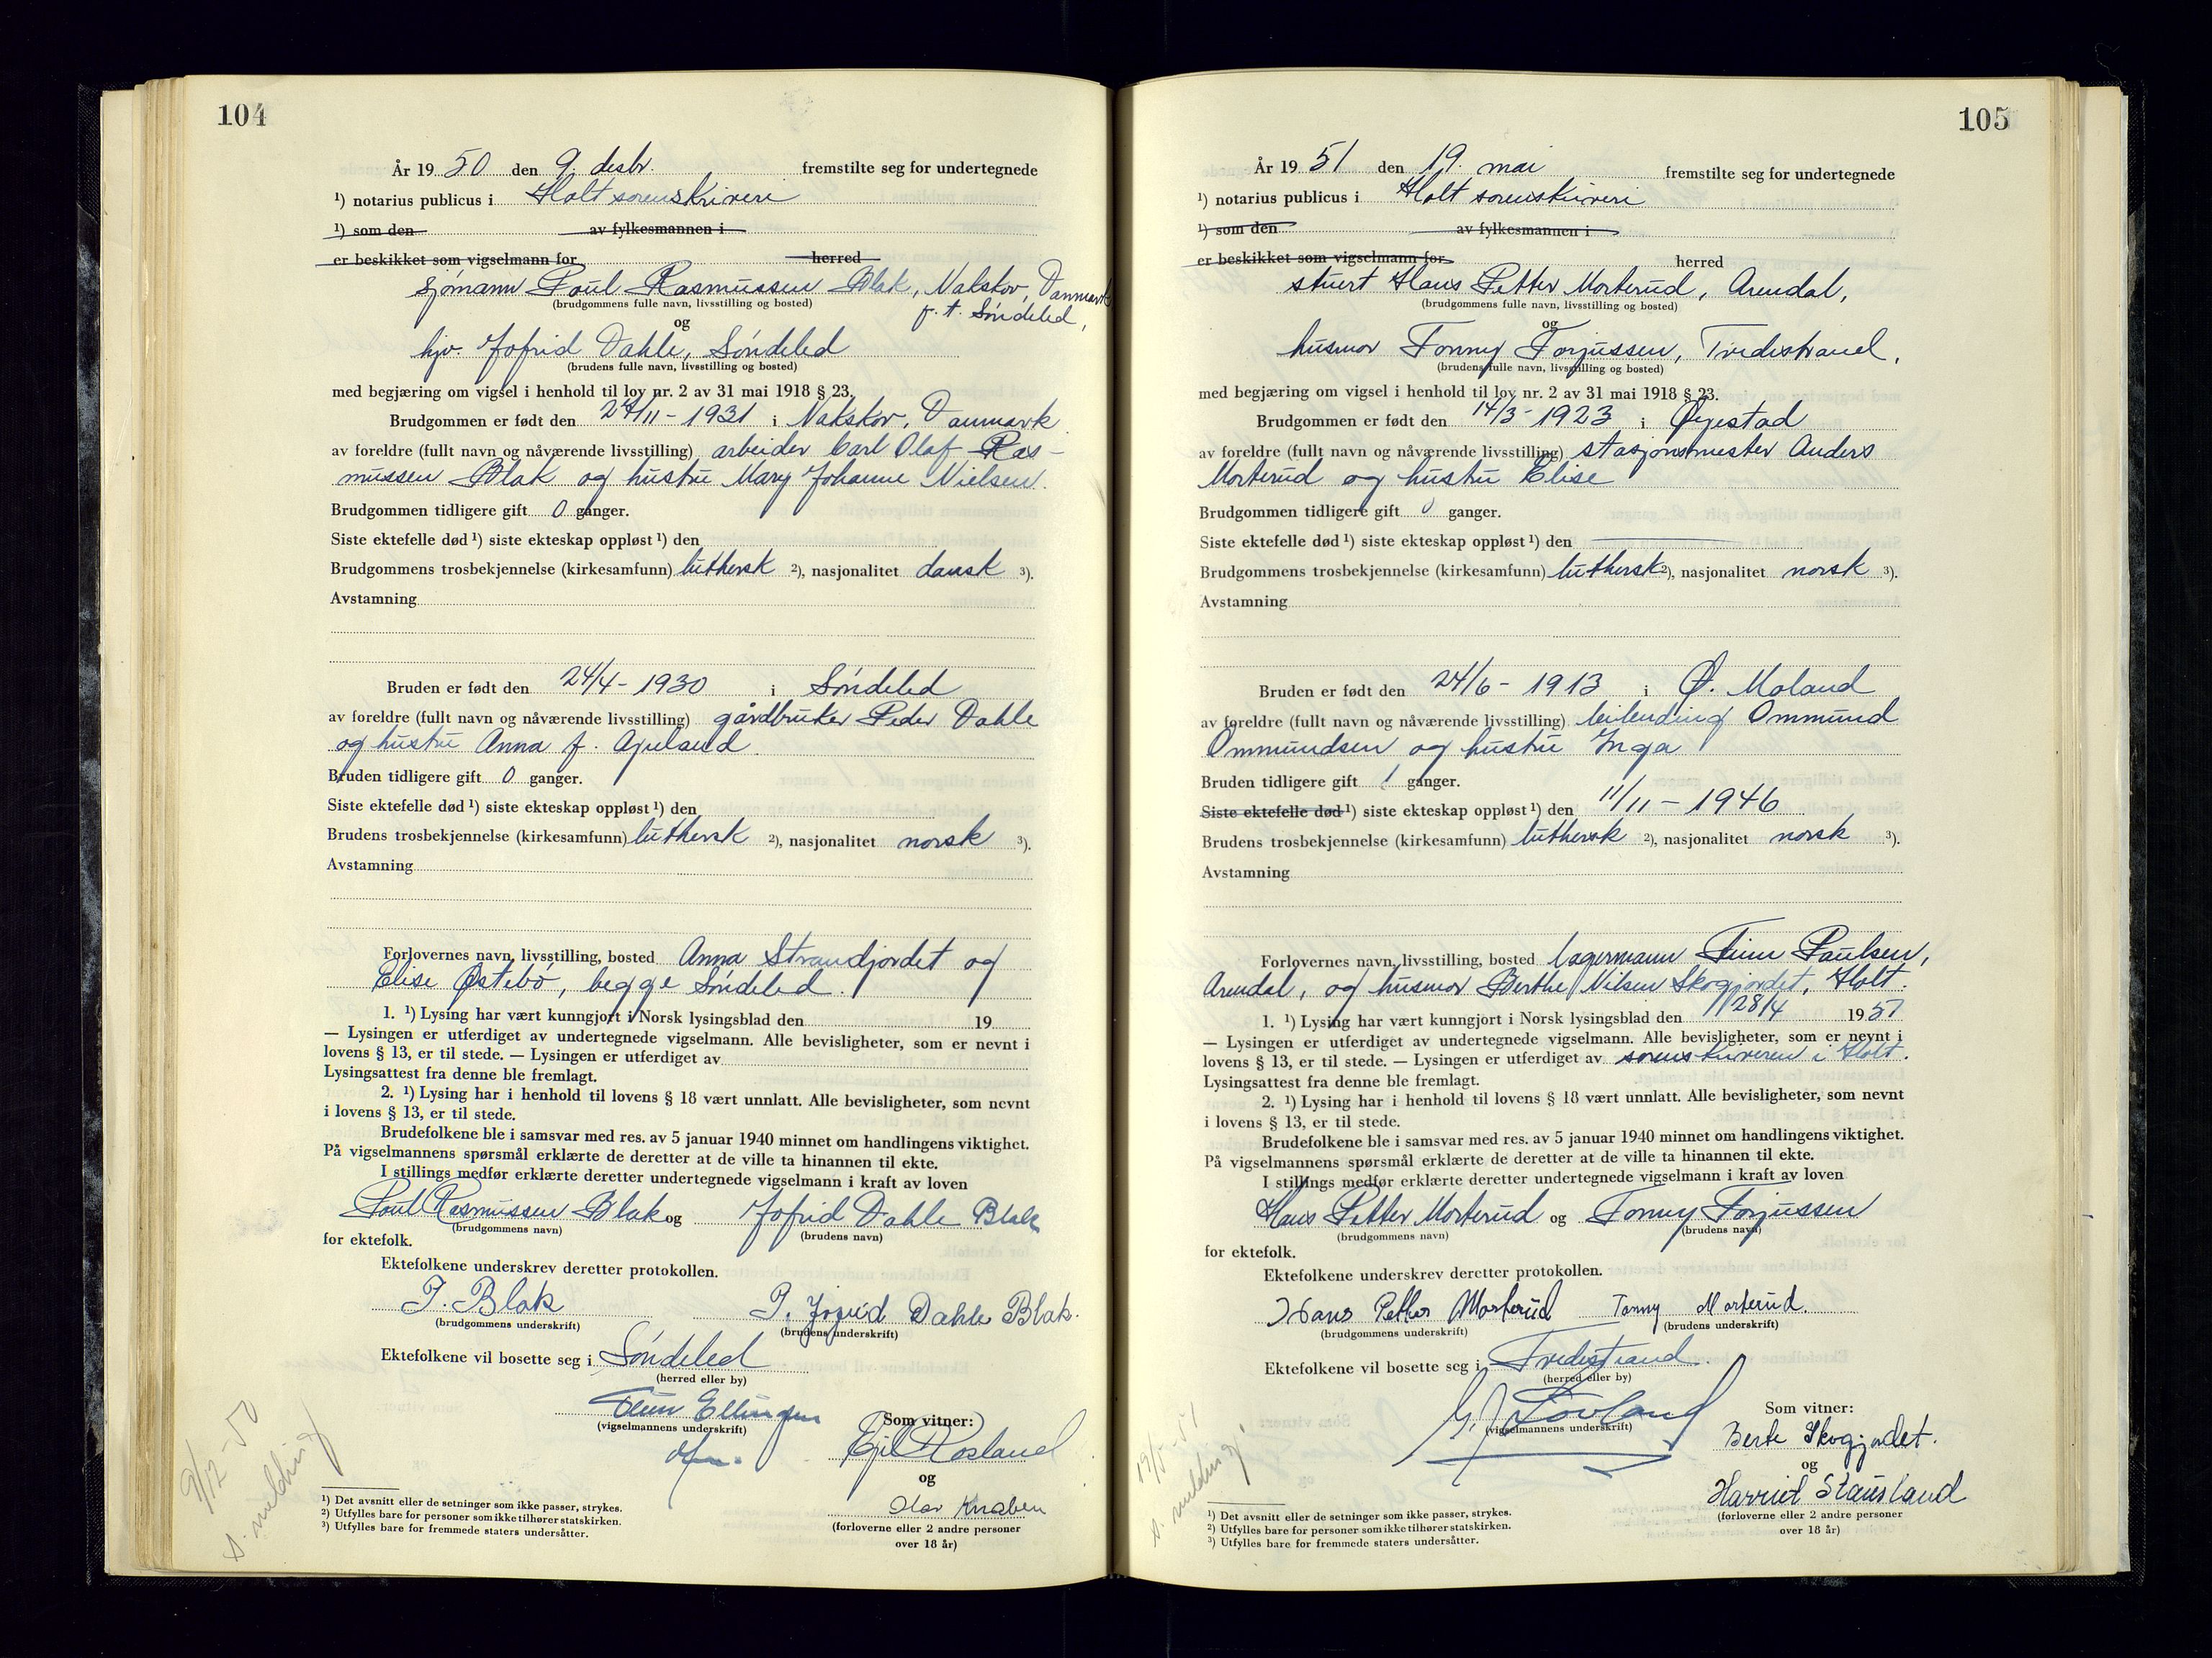 104
År 19 50 den 9. desbr. fremstilte seg for undertegnede
¹) notarius publicus i Holt sorenskriveri
¹) som den av fylkesmannen i
er beskikket som vigselmann for herred
sjømann Poul Rasmussen Blak, Nakskov, Danmark
(brudgommens fulle navn, livsstilling og bosted) p. t. Søndeled,
og
hjv. Jofrid Dahle, Søndeled
(brudens fulle navn, livsstilling og bosted)
med begjæring om vigsel i henhold til lov nr. 2 av 31 mai 1918 § 23.
Brudgommen er født den 24/11 - 1931 i Nakskov, Danmark
av foreldre (fullt navn og nåværende livsstilling) arbeider Carl Olaf Ras-
mussen Blak og hustru Mary Johanne Nielsen.
Brudgommen tidligere gift 0 ganger.
Siste ektefelle død ¹) siste ekteskap oppløst ¹) den
Brudgommens trosbekjennelse (kirkesamfunn) luthersk ²), nasjonalitet dansk ³).
Avstamning
Bruden er født den 24/4 - 1930 i Søndeled
av foreldre (fullt navn og nåværende livsstilling) gårdbruker Peder Dahle
og hustru Anna f.
Bruden tidligere gift 0 ganger.
Siste ektefelle død ¹) siste ekteskap oppløst ¹) den
Brudens trosbekjennelse (kirkesamfunn) luthersk ²), nasjonalitet norsk ³).
Avstamning
Forlovernes navn, livsstilling, bosted Anna Strandjordet og
Elise Østebø, begge Søndeled.
1. ¹) Lysing har vært kunngjort i Norsk lysingsblad den 19
— Lysingen er utferdiget av undertegnede vigselmann. Alle bevisligheter, som er nevnt i
lovens § 13, er til stede. — Lysingen er utferdiget av
Lysingsattest fra denne ble fremlagt.
2. ¹) Lysing har i henhold til lovens § 18 vært unnlatt. Alle bevisligheter, som nevnt
i lovens § 13, er til stede.
Brudefolkene ble i samsvar med res. av 5 januar 1940 minnet om handlingens viktighet.
På vigselmannens spørsmål erklærte de deretter at de ville ta hinannen til ekte.
I stillings medfør erklærte deretter undertegnede vigselmann i kraft av loven
Poul Rasmussen Blak og Jofrid Dahle Blak
(brudgommens navn) (brudens navn)
for ektefolk.
Ektefolkene underskrev deretter protokollen.
P. Blak P. Jofrid Dahle Blak.
(brudgommens underskrift) (brudens underskrift)
Ektefolkene vil bosette seg i Søndeled
(herred eller by)
Finn Ellingsen
(vigselmannens underskrift)
Som vitner:
Egil Røsland
og
Olav Knaben
(forloverne eller 2 andre personer
over 18 år)
9/12-50
s. melding
¹) Det avsnitt eller de setninger som ikke passer, strykes.
²) Utfylles bare for personer som ikke tilhører statskirken.
³) Utfylles bare for fremmede staters undersåtter.
105
År 19 51 den 19. mai fremstilte seg for undertegnede
¹) notarius publicus i Holt sorenskriveri
¹) som den av fylkesmannen i
er beskikket som vigselmann for herred
stuert Hans Petter Morterud, Arendal,
(brudgommens fulle navn, livsstilling og bosted)
og
husmor Tonny Torjussen, Tvedestrand,
(brudens fulle navn, livsstilling og bosted)
med begjæring om vigsel i henhold til lov nr. 2 av 31 mai 1918 § 23.
Brudgommen er født den 14/3 - 1923 i Øyestad
av foreldre (fullt navn og nåværende livsstilling) stasjonsmester Anders
Morterud og hustru Elise
Brudgommen tidligere gift 0 ganger.
Siste ektefelle død ¹) siste ekteskap oppløst ¹) den
Brudgommens trosbekjennelse (kirkesamfunn) luthersk ²), nasjonalitet norsk ³).
Avstamning
Bruden er født den 24/6 - 1913 i Ø. Moland
av foreldre (fullt navn og nåværende livsstilling) leilending Ommund
Ommundsen og hustru Inga
Bruden tidligere gift 1 ganger.
Siste ektefelle død ¹) siste ekteskap oppløst ¹) den 11/11 - 1946
Brudens trosbekjennelse (kirkesamfunn) luthersk ²), nasjonalitet norsk ³).
Avstamning
Forlovernes navn, livsstilling, bosted lagermann Finn Paulsen,
Arendal, og husmor Berthe Nilsen Skogjordet, Holt.
1. ¹) Lysing har vært kunngjort i Norsk lysingsblad den 28/4 1951
— Lysingen er utferdiget av undertegnede vigselmann. Alle bevisligheter, som er nevnt i
lovens § 13, er til stede. — Lysingen er utferdiget av sorenskriveren i Holt.
Lysingsattest fra denne ble fremlagt.
2. ¹) Lysing har i henhold til lovens § 18 vært unnlatt. Alle bevisligheter, som nevnt
i lovens § 13, er til stede.
Brudefolkene ble i samsvar med res. av 5 januar 1940 minnet om handlingens viktighet.
På vigselmannens spørsmål erklærte de deretter at de ville ta hinannen til ekte.
I stillings medfør erklærte deretter undertegnede vigselmann i kraft av loven
Hans Petter Morterud og Tonny Torjussen
(brudgommens navn) (brudens navn)
for ektefolk.
Ektefolkene underskrev deretter protokollen.
Hans Petter Morterud Tonny Morterud.
(brudgommens underskrift) (brudens underskrift)
Ektefolkene vil bosette seg i Tvedestrand.
(herred eller by)
Løvland
(vigselmannens underskrift)
Som vitner:
Berte Skogjordet.
og
Harriet Stausland
(forloverne eller 2 andre personer
over 18 år)
19/5-51
s. melding
¹) Det avsnitt eller de setninger som ikke passer, strykes.
²) Utfylles bare for personer som ikke tilhører statskirken.
³) Utfylles bare for fremmede staters undersåtter.